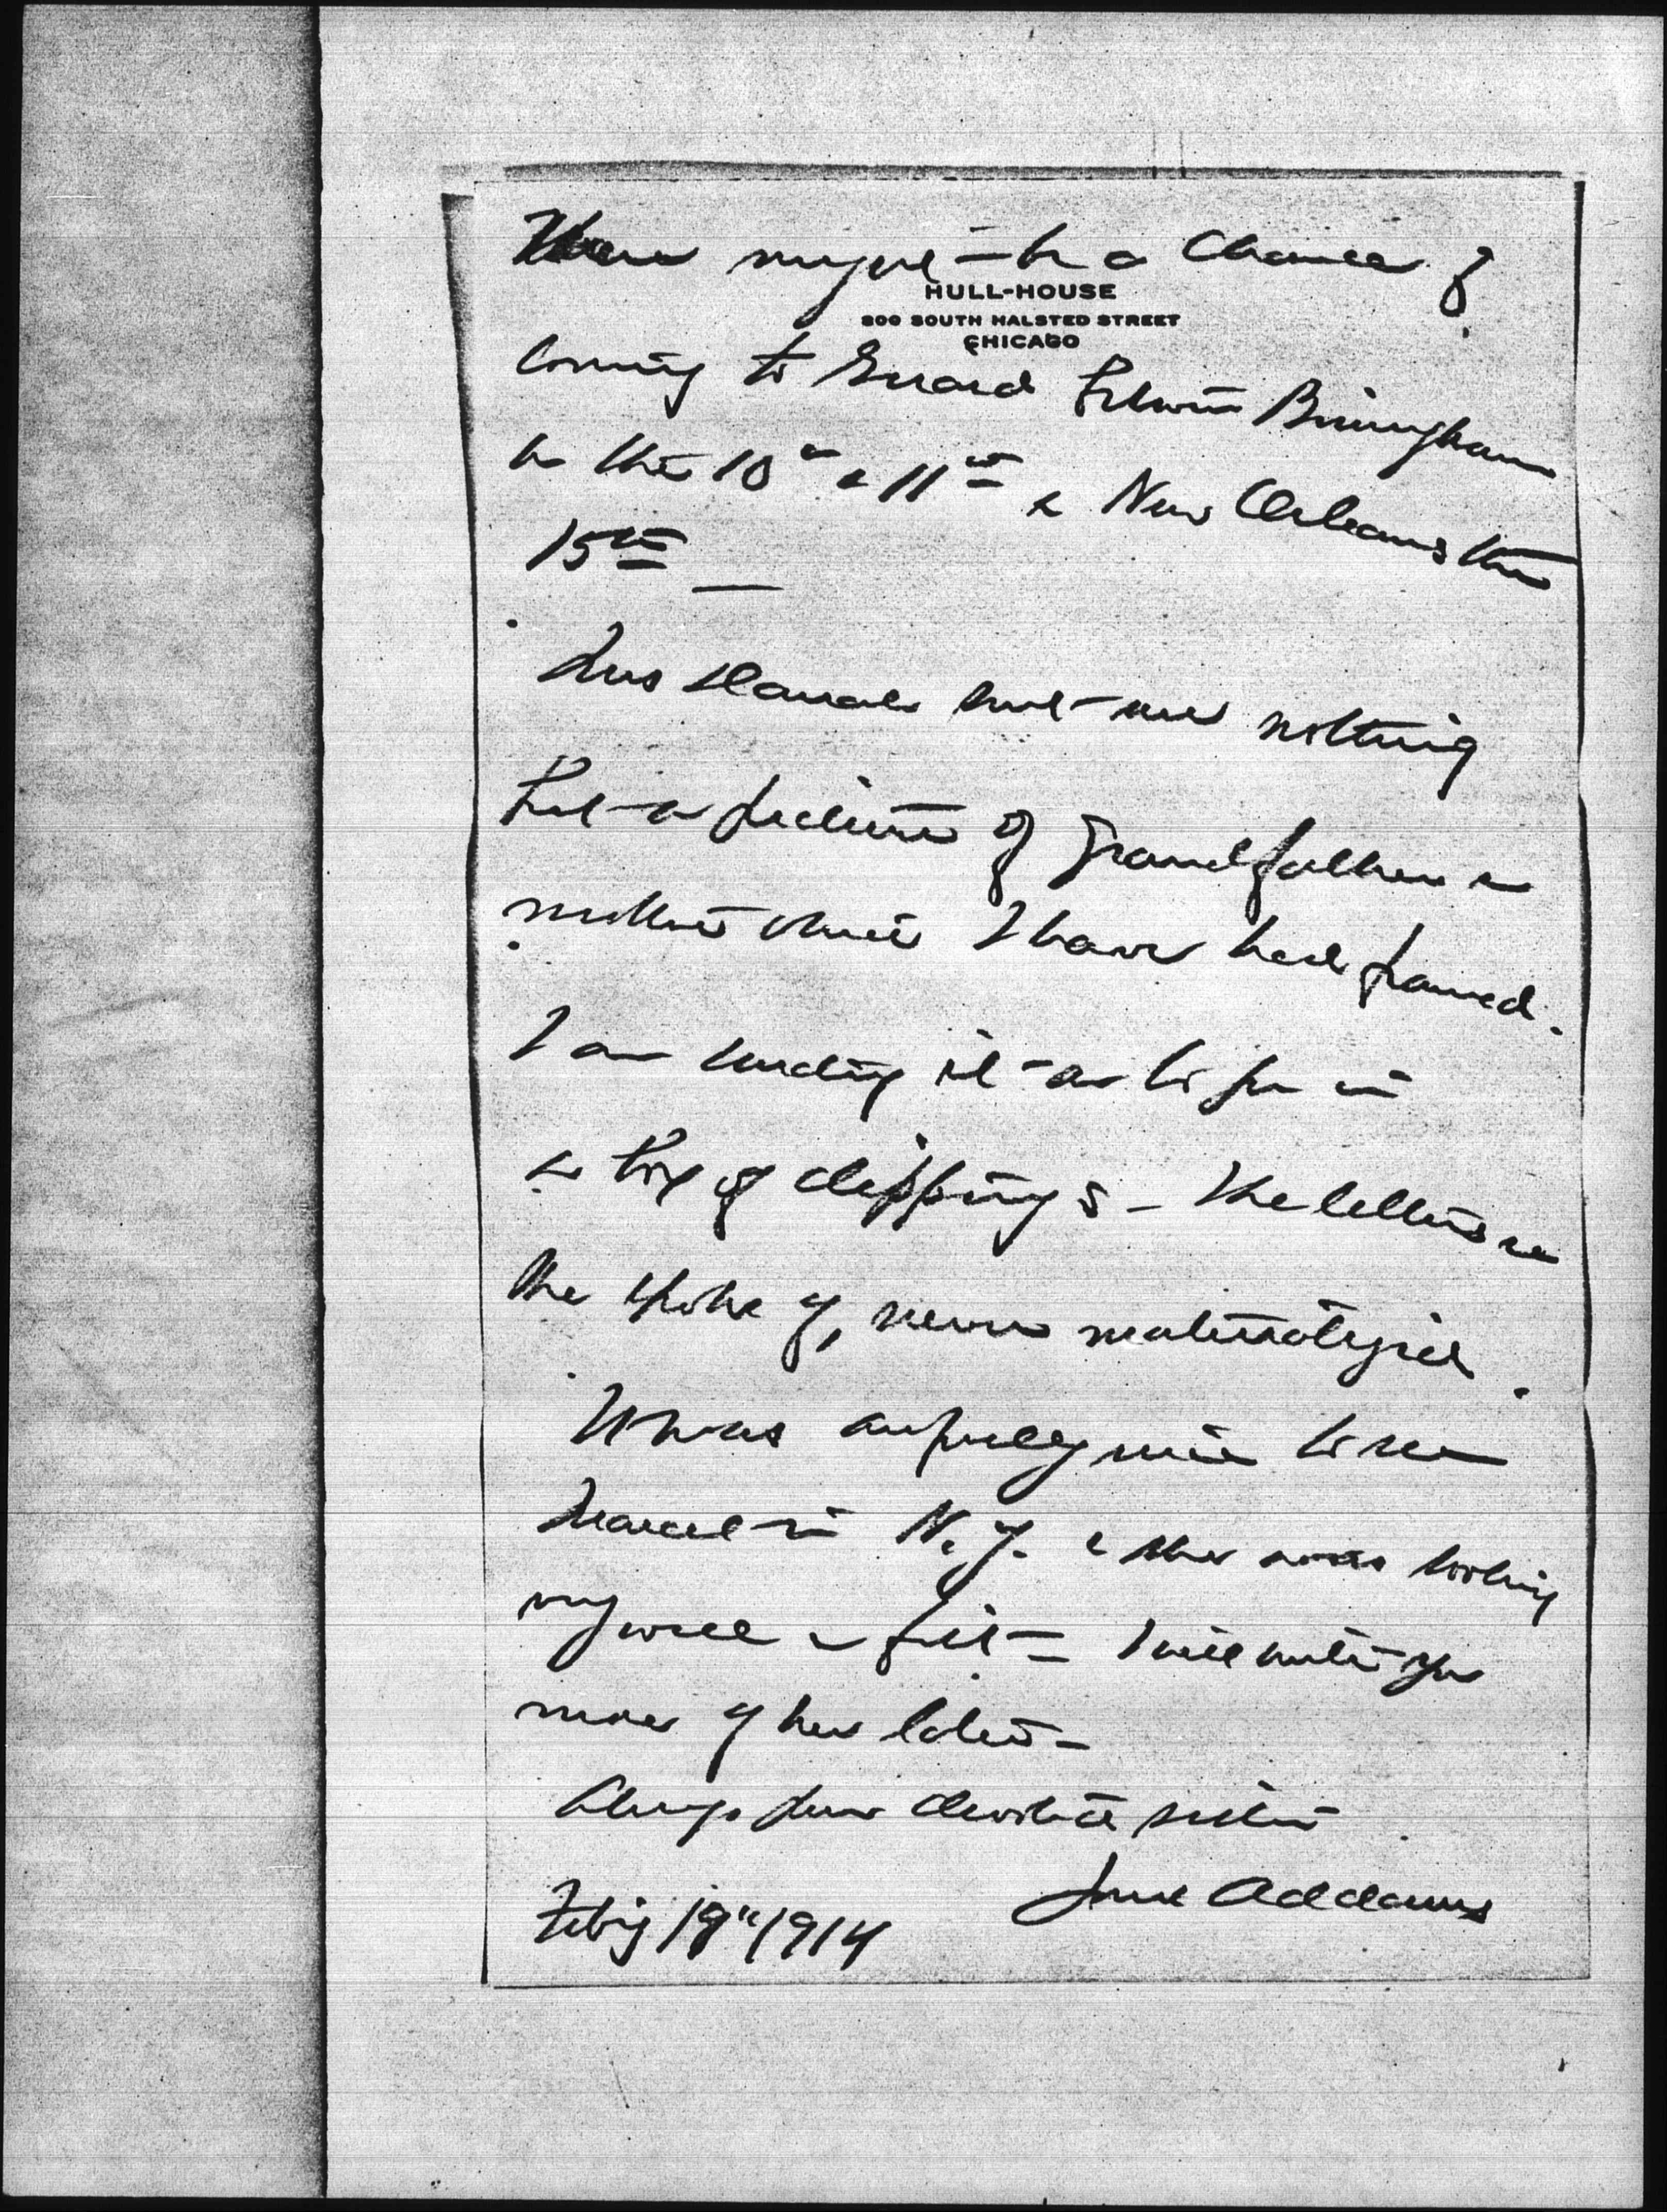 There might be a chance of
HULL-HOUSE
800 SOUTH HALSTED STREET
CHICAGO
coming to Girard between Birmingham
on the 10th & 11th & New Orleans the
15th —
Mrs sent me nothing
but a picture of grandfather &
mother which I have had framed.
I am sending it as to you in
a box of clippings — the letters
she spoke of, never materialized.
It was awfully nice to see
Marcet in N.Y. & she was looking
very well & fit — I will write you
more of her later —
Always your devoted sister
Jane Addams
Feb'y 19" 1914